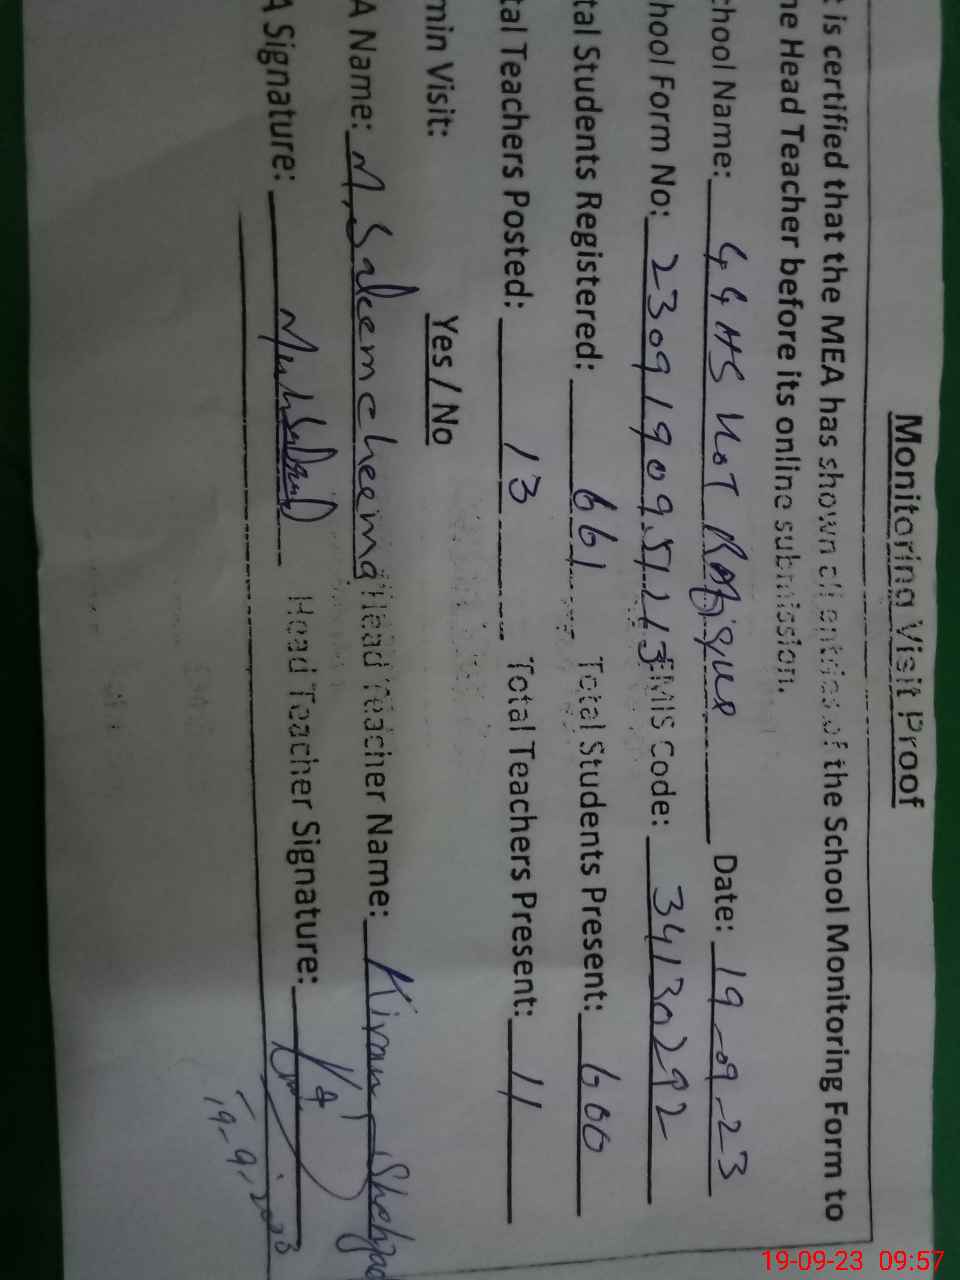 Monitoring Visit Proof
t is certified that the MEA has shown all entries of the School Monitoring Form to
he Head Teacher before its online submission.
chool Name: GGHS Kot Rafique Date: 19-09-23
hool Form No: 2309190951213 EMIS Code: 34130292
tal Students Registered: 661 Total Students Present: 600
tal Teachers Posted: 13 Total Teachers Present: 11
min Visit: Yes / No
A Name: M. Saleem cheema Head Teacher Name: Kiran Shahzad
A Signature: Head Teacher Signature:
19-9-2023
19-09-23 09:57